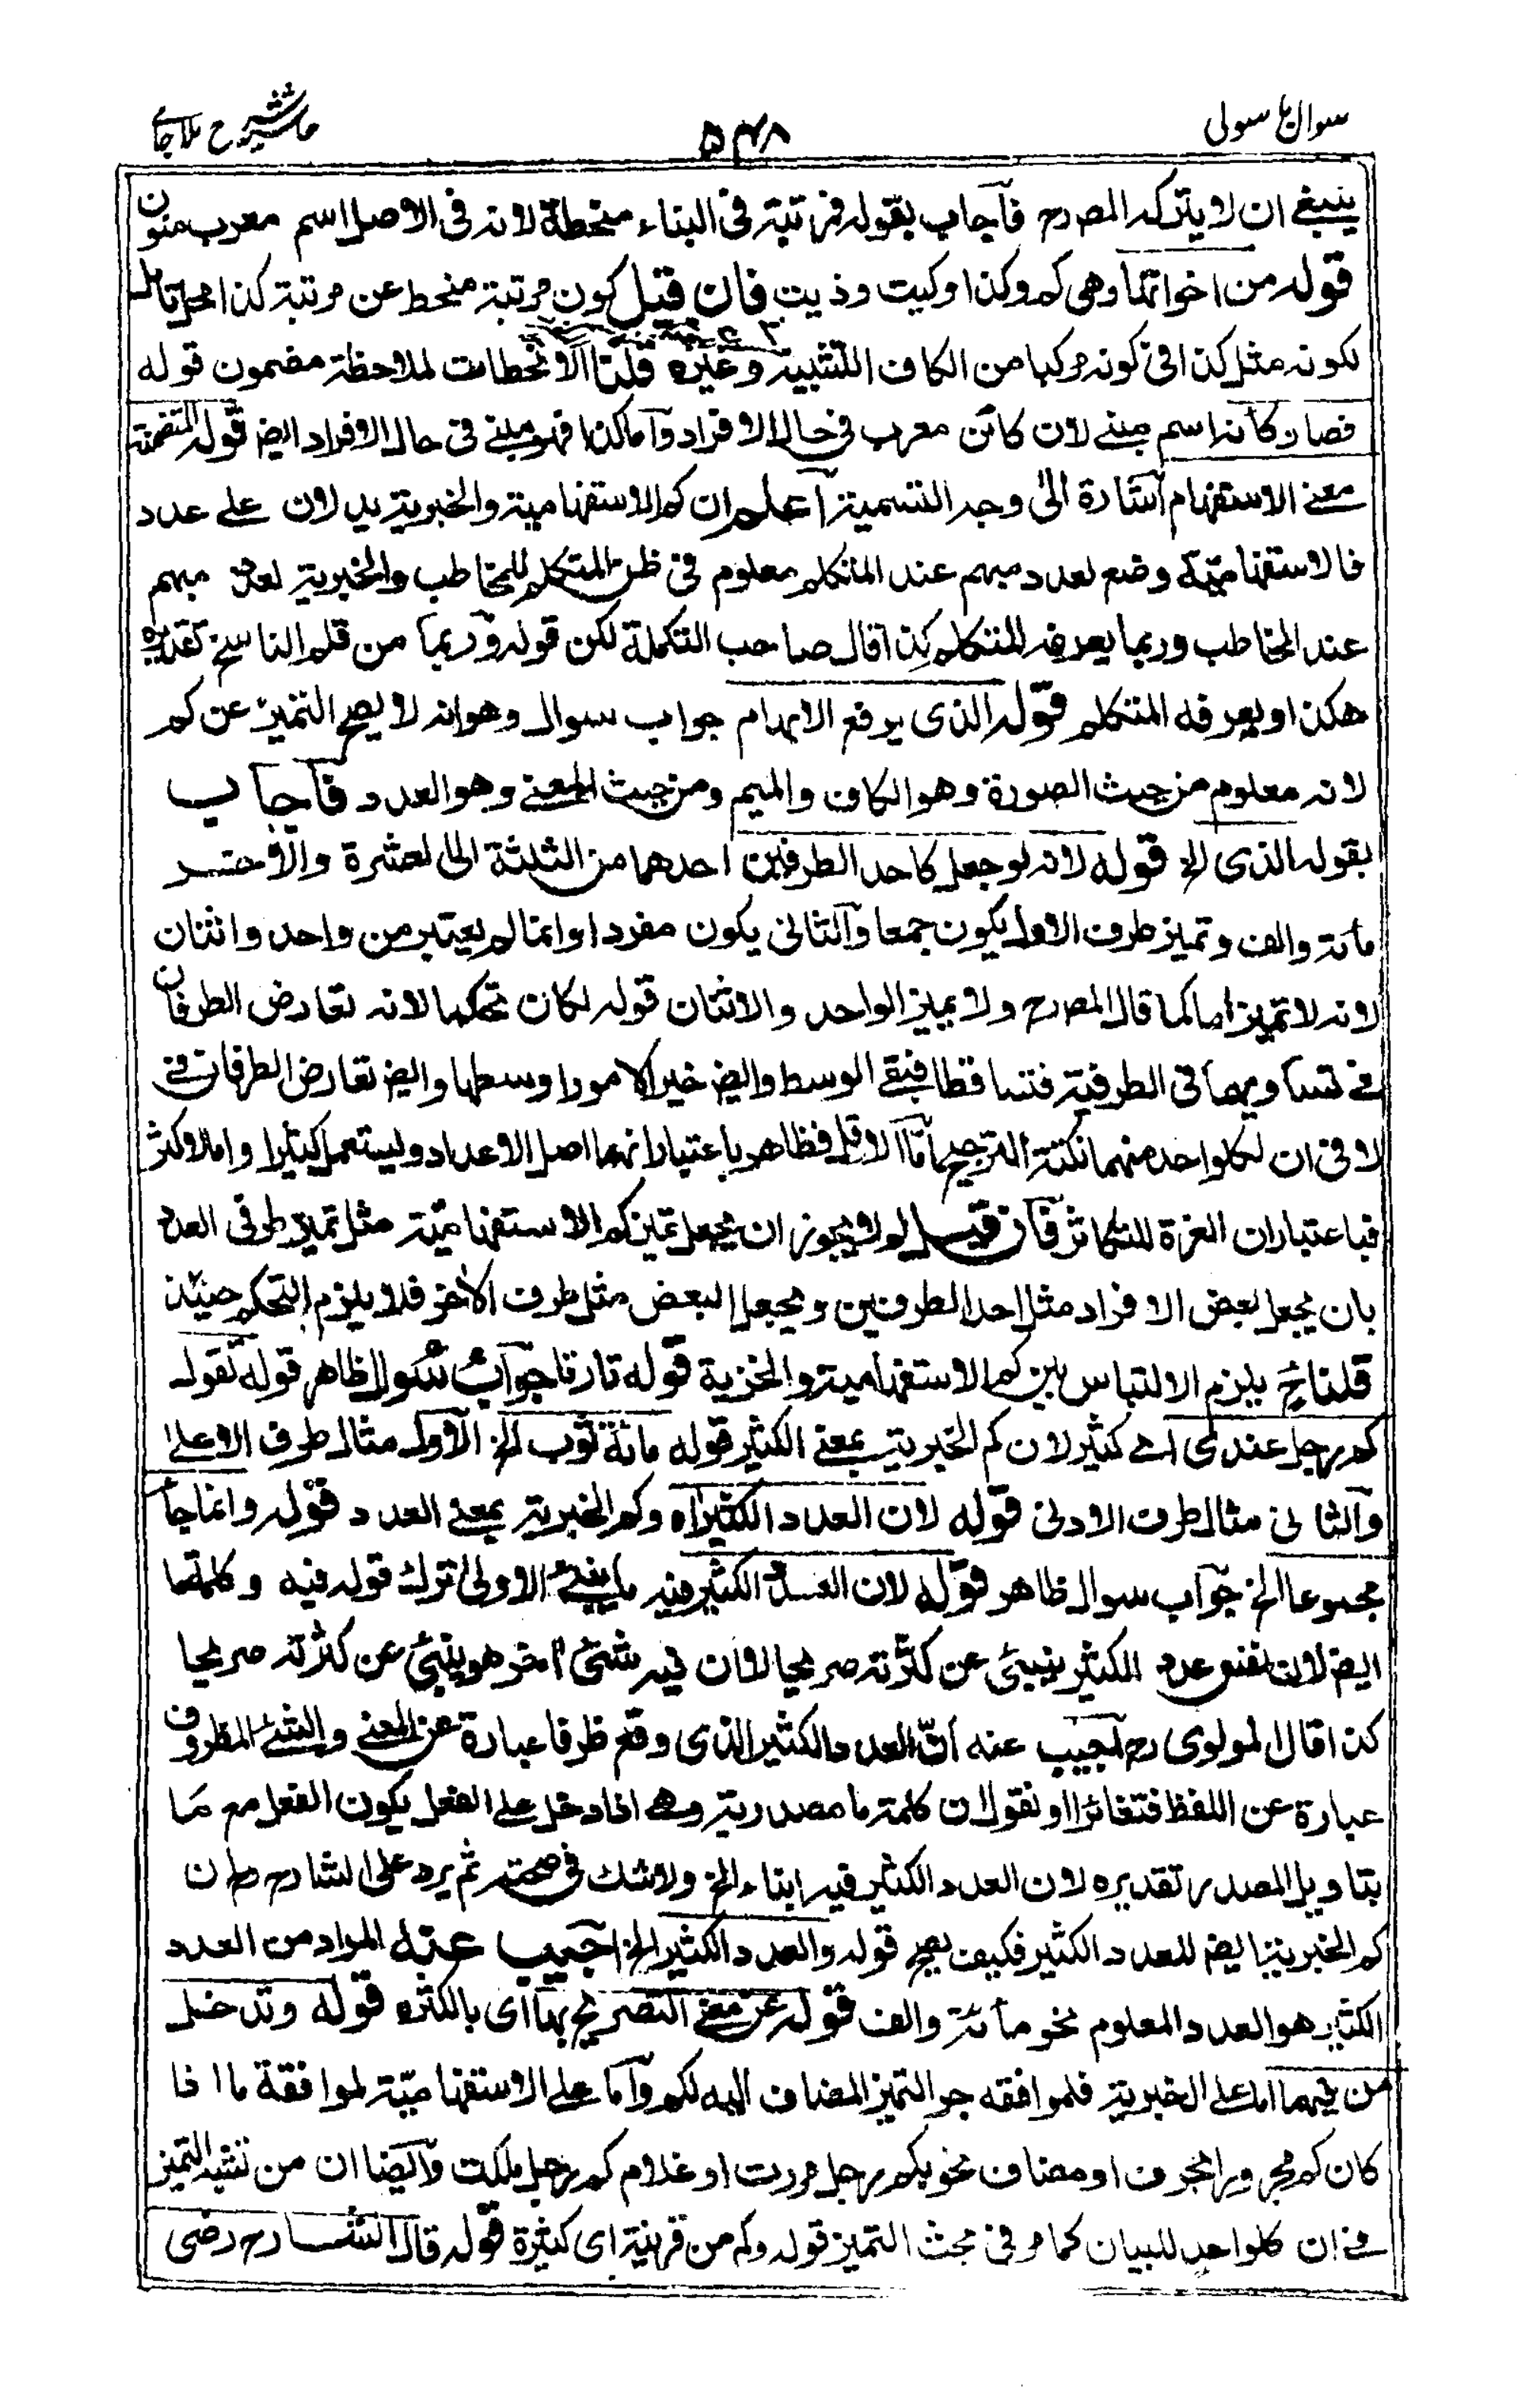 سوال باسولی
۵۴۸
حاشیه شرح ملا جامے
ینبغے ان لا یترکه المصرح فاجاب بقوله فمرتبته فی البناء منحطة لانه فی الاصل اسم معرب منون
قوله من اخواتها وهی کم وکذا وکیت وذیت فان قیل کون مرتبة منحط عن مرتبة کذا محل تامل
لکونه مثل کذا فی کونه مرکبا من الکاف التشبیه وغیره قلنا الانحطاط لملاحظة مضمون قوله
فصار کانه اسم مبنے لان کائن معرب فی حال الافراد واما کذا فهو مبنے فی حال الافراد ایض قوله المتضمنة
معنے الاستفهام اشارة الیٰ وجه التسمیة اعلم ان کم الاستفهامیة والخبریة یدلان علے عدد
فالاستفهامیة وضع لعدد مبهم عند المتکلم معلوم فی ظن المتکلم للمخاطب والخبریة لعدد مبهم
عند المخاطب وربما یعرفه المتکلم کذا قال صاحب التکملة لکن قوله وربما من قلم الناسخ تقدیره
هکذا ویعرفه المتکلم قوله الذی یرفع الابهام جواب سوال وهو انه لا یصح التمیز عن کم
لانه معلوم من حیث الصورة وهو الکاف والمیم ومن حیث المعنے وهو العدد فاجاب
بقوله الذی الخ قوله لانه لو جعل کاحد الطرفین احدهما من الثلثة الی العشرة والاخر
مأته والف وتمیز طرف الاول یکون جمعا والثانی یکون مفردا وانما لم یعتبر من واحد واثنان
لانه لا تمیز لهما کما قال المصرح ولا یمیز الواحد والاثنان قوله لکان تحکما لانه تعارض الطرفان
فے تساویهما فی الطرفیة فتساقطا فبقے الوسط وایض خیر الامور اوسطها وایض تعارض الطرفان فے
لا فی ان لکل واحد منهما نکتة الترجیح اما الاقل فظاهر باعتبار انهما اصل الاعداد ویستعمل کثیرا واما الاکثر
فباعتبار ان العزة للتکاثر فان قیل لم لا یجوز ان یجعل تمیز کم الاستفهامیة مثل تمیز طرفی العدد
بان یجعل بعض الافراد مثل احد الطرفین ویجعل البعض مثل طرف الاٰخر فلا یلزم التحکم حینئذ
قلناح یلزم الالتباس بین کم الاستفهامیة والخبریة قوله تارتا جواب سوال ظاهر قوله تقول
کم رجل عندی اے کثیر لان کم الخبریة بمعنے الکثیر قوله مائة ثوب الخ الاول مثال طرف الاعلے
والثانی مثال طرف الادنی قوله لان العدد الکثیراه وکم الخبریة بمعنے العدد قوله وانما جاء
مجموعا الخ جواب سوال ظاهر قوله لان العدد الکثیر فیه ما ینبئ الاولیٰ ترک قوله فیه وکلمة ما
ایض لان نفس عدد الکثیر ینبئ عن کثرته صریحا لا ان فیه شئ اٰخر هو ینبئ عن کثرته صریحا
کذا قال المولوی رح اجیب عنه ان العدد الکثیر الذی وقع ظرفا عبارة عن المعنے والشئ المظروف
عبارة عن اللفظ فتغائرا او نقول ان کلمة ما مصدریة وهے اذا دخل علے الفعل یکون الفعل مع ما
بتاویل المصدر تقدیره لان العدد الکثیر فیه انباء الخ ولاشک فی صحته ثم یرد علی الشارح ان
کم الخبریة ایض للعدد الکثیر فکیف یصح قوله والعدد الکثیر الخ اجیب عنه المراد من العدد
الکثیر هو العدد المعلوم نحو مأئة والف قوله عن معنے التصریح بها ای بالکثره قوله وتدخل
من فیهما اما علے الخبریة فلموافقه جر التمیز المضاف الیه لکم واما علے الاستفهامیة لموافقة ما اذا
کان کم مجرورا بحرف او مضاف نحو بکم رجل مررت او غلام کم رجل ملکت وایضا ان من تشبه التمیز
فے ان کلواحد للبیان کما مر فی بحث التمیز قوله وکم من قریة ای کثیرة قوله قال الشارح رضی